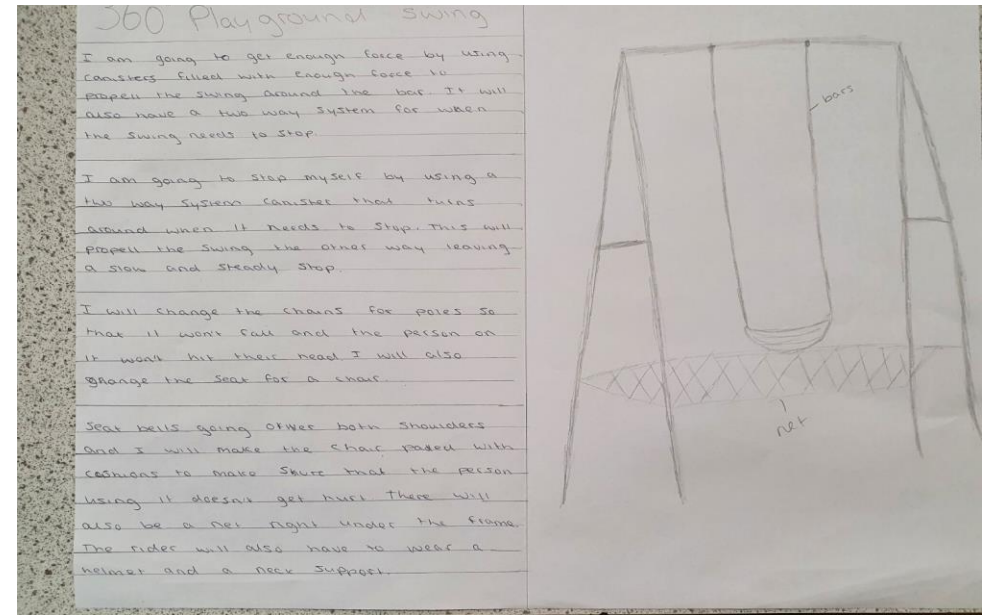 360 Playground Swing
I am going to get enough force by using
canisters filled with enough force to
propell the swing around the bar. It will
also have a two way system for when
the swing needs to stop.
I am going to stop myself by using a
two way system canister that turns
around when it needs to stop. This will
propell the swing the other way leaving
a slow and steady stop.
I will change the chains for poles so
that it won't fall and the person on
it won't hit their head. I will also
change the seat for a chair.
Seat bells going over both shoulders
and I will make the chair paded with
cashions to make shure that the person
using it doesn't get hurt there will
also be a net right under the frame.
The rider will also have to wear a
helmet and a neck support.
bars
net